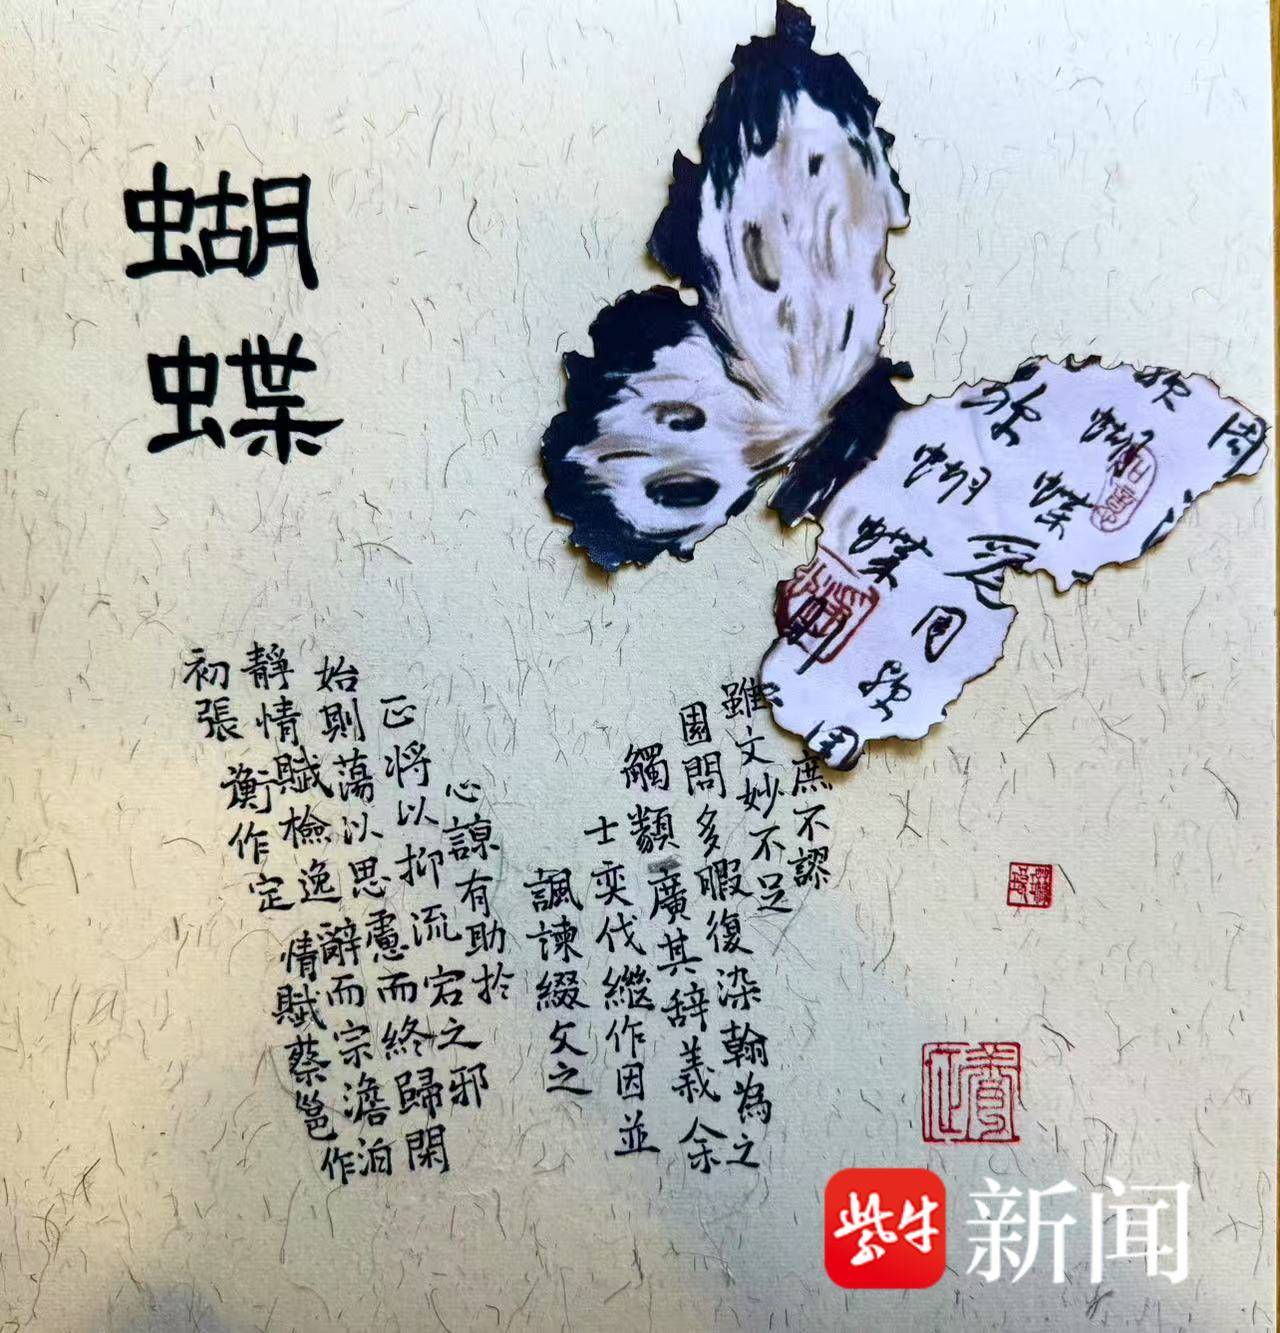 蝴
蝶
蝴蝶
蝴蝶
周
周
周
初張
衡作定
情賦蔡邕作
靜情賦檢逸
辭而宗澹泊
始則蕩以思慮而終歸閑
正將以抑流宕之邪
心諒有助扵
諷諫綴文之
士奕代繼作因並
觸類廣其辞義余
園閭多暇復染翰為之
雖文妙不足
庶不謬
紫牛
新闻